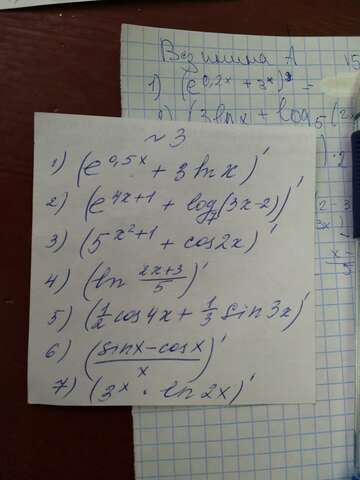 Вэзинина А
1) (e^0,2x + 3^x)'
(3lnx + log₅(2x
№ 3
1) (e^0,5x + 3lnx)'
2) (e^4x+1 + log₇(3x-2))'
3) (5^x²+1 + cos2x)'
4) (ln (2x+3)/5)'
5) (1/2 cos4x + 1/3 sin3x)'
6) ((sinx-cosx)/x)'
7) (3^x · ln2x)'